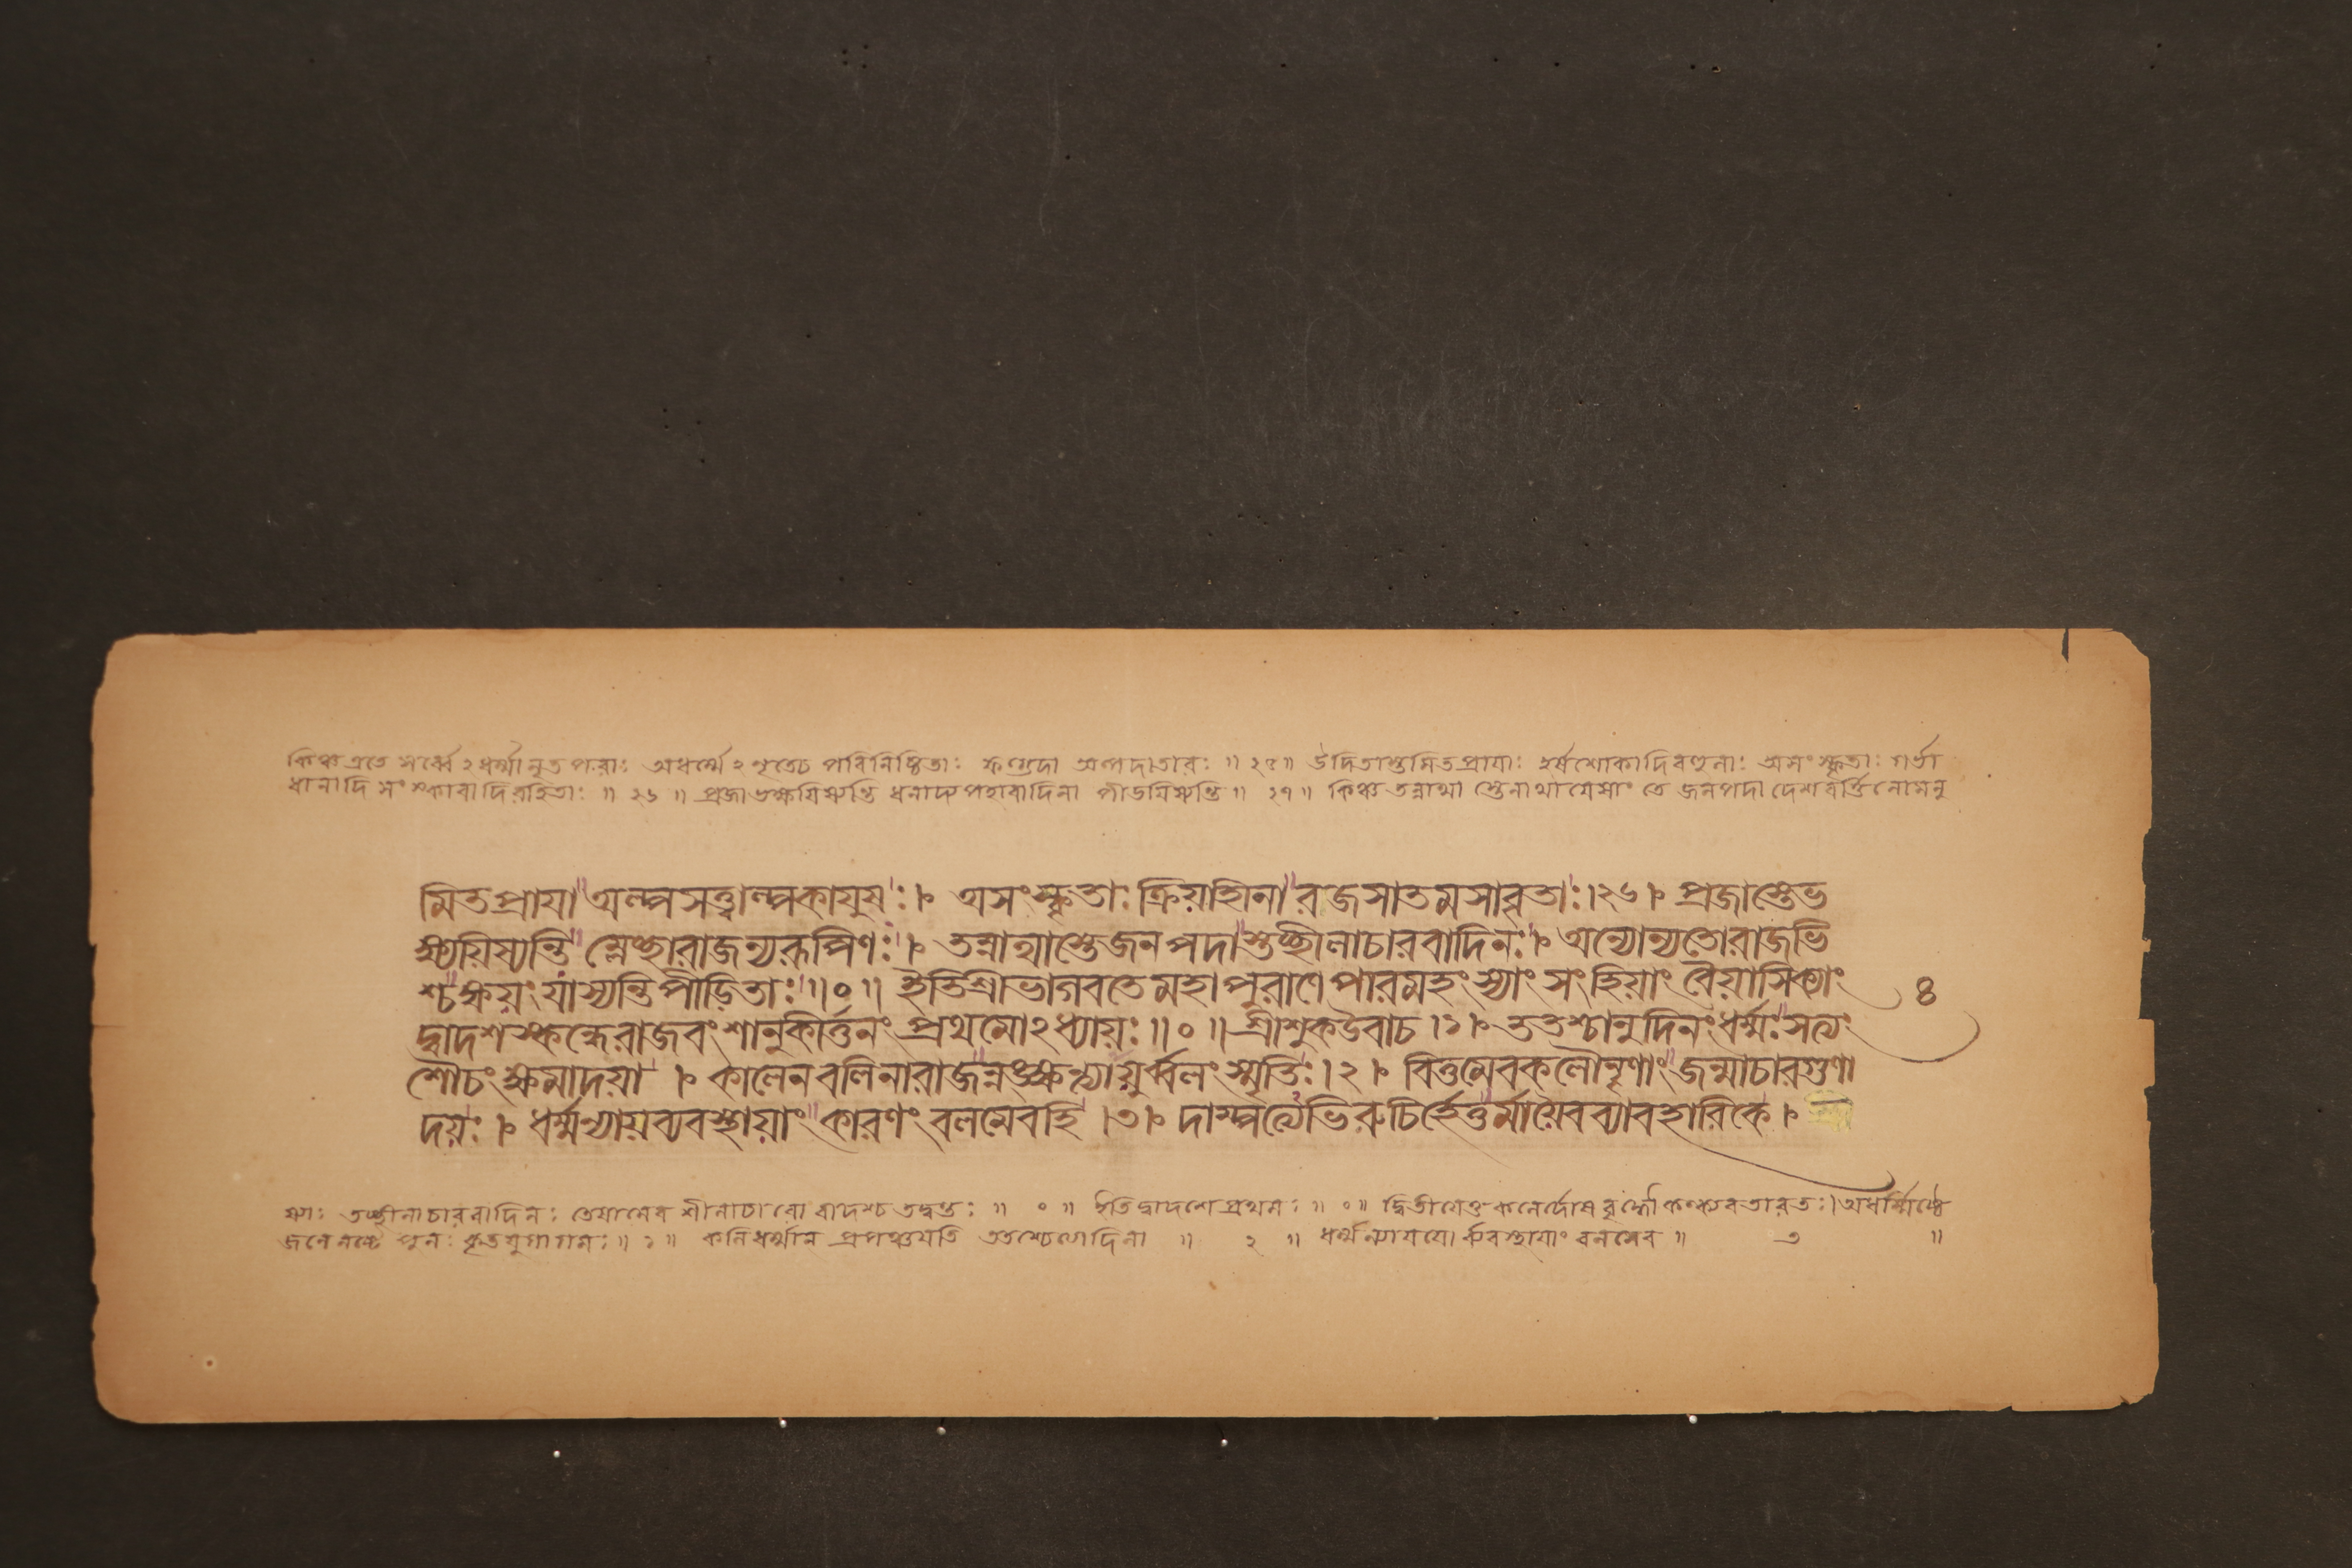 কিঞ্চ এতে সর্ব্বে২ধর্ম্মানৃতপরাঃ অধর্ম্মে২নৃতেচ পরিনিষ্ঠিতাঃ ফল্গুদা অল্পদাতারঃ ॥২৫॥ উদিতাস্তমিতপ্রায়াঃ হর্ষশোকাদিবহুলাঃ অসংস্কৃতাঃ গর্ভা
ধানাদি সংস্কারাদিরহিতাঃ ॥২৬॥ প্রজাভক্ষয়িষ্যন্তি ধনাদ্যপহারাদিনা পীডয়িষ্যন্তি ॥২৭॥ কিঞ্চ তন্নাথা স্তেনাথাযেষাং তে জনপদা দেশবর্ত্তিনোমনু
মিতপ্রায়া অল্পসত্ত্বাল্পকায়ুষঃ।৮ অসংস্কৃতাঃ ক্রিয়াহীনা রজসাতমসাবৃতাঃ।২৬।৮ প্রজাস্তেভ
ক্ষ্যয়িষ্যন্তি ম্লেচ্ছারাজন্যরূপিণঃ।৮ তন্নাথাস্তেজনপদাস্তচ্ছীলাচারবাদিনঃ।৮ অন্যোন্যতোরাজভি
শ্চক্ষয়ং যাস্যন্তি পীড়িতাঃ ॥০॥ ইতিশ্রীভাগবতে মহাপুরাণে পারমহংস্যাং সংহিয়াং বৈয়াসিক্যাং ৪
দ্বাদশস্কন্ধেরাজবংশানুকীর্ত্তনং প্রথমো২ধ্যায়ঃ ॥০॥ শ্রীশুকউবাচ।১।৮ ততশ্চানুদিনং ধর্ম্মঃ সত্যং
শৌচং ক্ষমাদয়া ।৮ কালেনবলিনারাজন্নঙ্ক্ষ্যত্যায়ুর্ব্বলং স্মৃতিঃ।২।৮ বিত্তমেবকলৌনৃণাং জন্মাচারগুণো
দয়ঃ।৮ ধর্ম্মন্যায়ব্যবস্থায়াং কারণং বলমেবহি।৩।৮ দাম্পত্যেভিরুচির্হেতুর্মায়ৈবব্যাবহারিকে।৮
ষ্যাঃ তচ্ছীলাচারবাদিনঃ তেষামেব শীলাচারো বাদশ্চ তদ্বন্তঃ ॥০॥ ইতি দ্বাদশে প্রথমঃ ॥০॥ দ্বিতীয়েতু কলের্দোষবৃদ্ধৌ কল্ক্যবতারতঃ। অধর্ম্মিষ্ঠে
জনে নষ্টে পুনঃ কৃতযুগাগমঃ ॥১॥ কলিধর্ম্মান প্রপঞ্চয়তি ততশ্চেত্যাদিনা ॥২॥ ধর্ম্মন্যায়য়োর্ব্যবস্থায়াং বলমেব ॥ ৩ ॥